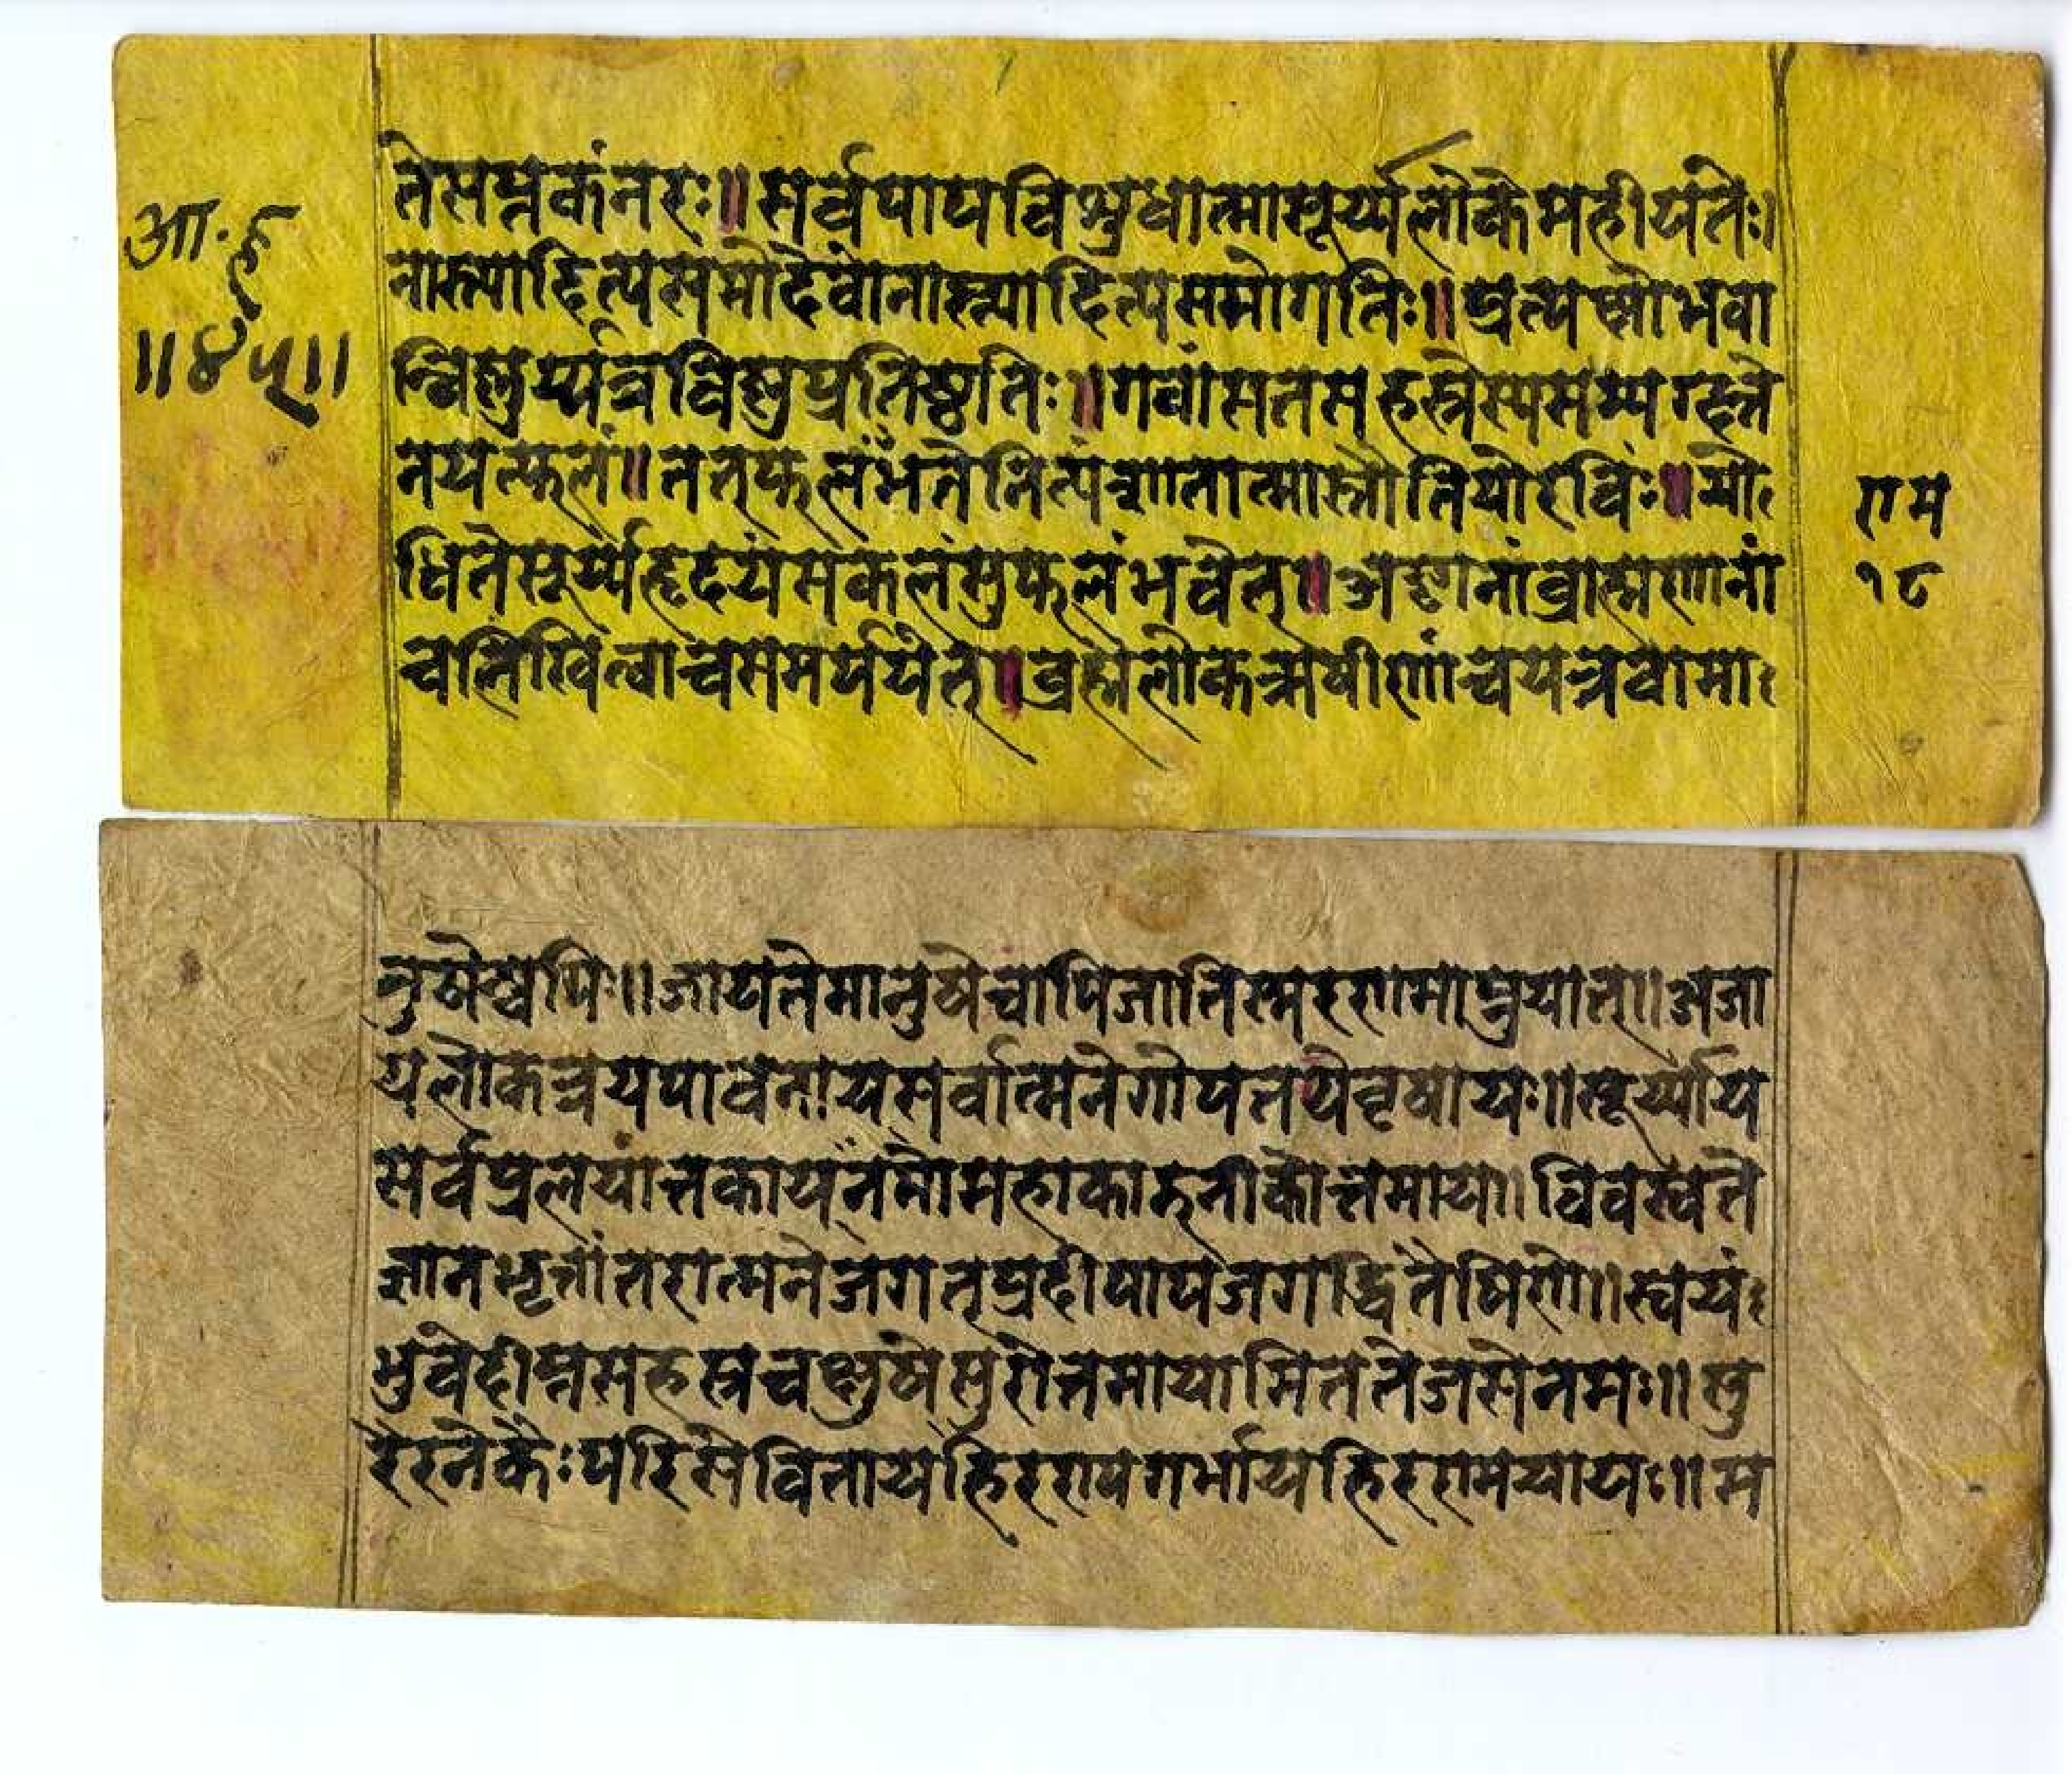 आ.हृ
॥४५॥
ते सप्तकं नरः॥ सर्वपापविशुधात्मा सूर्य्यलोके महीयतेः।
नास्त्यादित्यसमो देवो नास्त्यादित्यसमो गतिः॥ प्रत्यक्षो भवा
न्विष्णुर्य्यत्र विष्णु प्रतिष्ठतिः॥ गवां सतसहस्त्रेस्य सम्यग्दत्ते
न यत्फलं॥ तत्फलं
धिते सूर्य्यहृदयं सकलं सुफलं भवेत्॥ अङ्गानां ब्राह्मणानां
च लिखित्वा च समर्पयेत्॥ ब्रह्मलोक ऋषीणां च यत्र वा मा
राम
१८
नुषेश्वपिः॥ जायते मानुषे चापि जातिस्मरणमाप्नुयात्॥ अजा
य लोकत्रयपावनाय सर्वात्मने गोपतये वृषायः॥ सूर्य्याय
सर्वप्रलयांत्तकाय नमो महाकारुनीकोत्तमाय॥ विवस्वते
ज्ञानभृतांतरात्मने जगत्प्रदीपाय जगद्धितैषिणे॥ स्वयं
भुवे दीप्तसहस्त्रचक्षुषे सुरोत्तमायामिततेजसे नमः॥ सु
रैरनेकैः परिसेविताय हिरण्यगर्भाय हिरण्मयायः॥ म